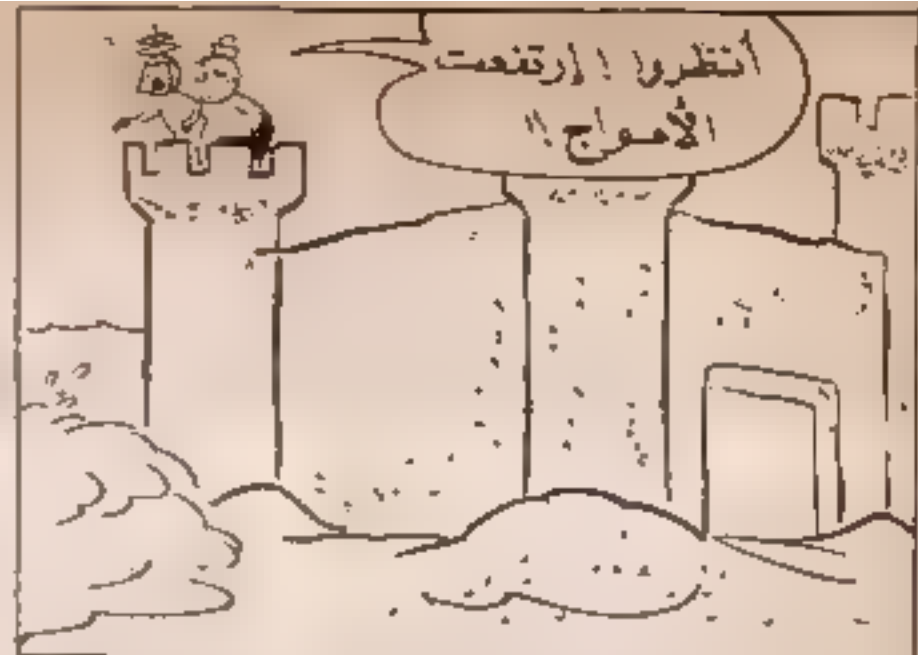 انظروا ! ارتفعت
الأمواج !!